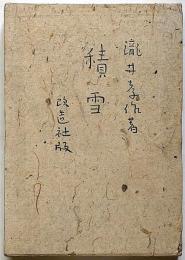 瀧井孝作著
積雪
改造社版